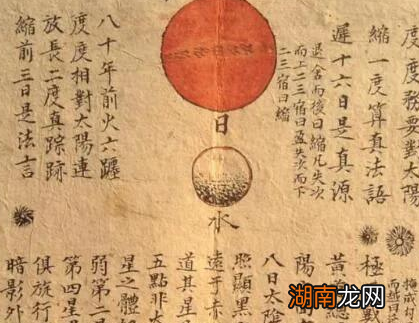 度度務要對太陽
縮一度算真法語
遲十六日是真源
退舍而後曰縮凡失次
而上二三宿曰盈失次而下
二三宿曰縮
日
水
八十年前火六躔
度度相對太陽連
放長二度真踪跡
縮前三日是法言
極
黃
陽
八日太陰
照顯黑
遠于赤
道其星
五點非太
星之體
弱第二
第四星
俱旅行
暗影外
湖南龙网